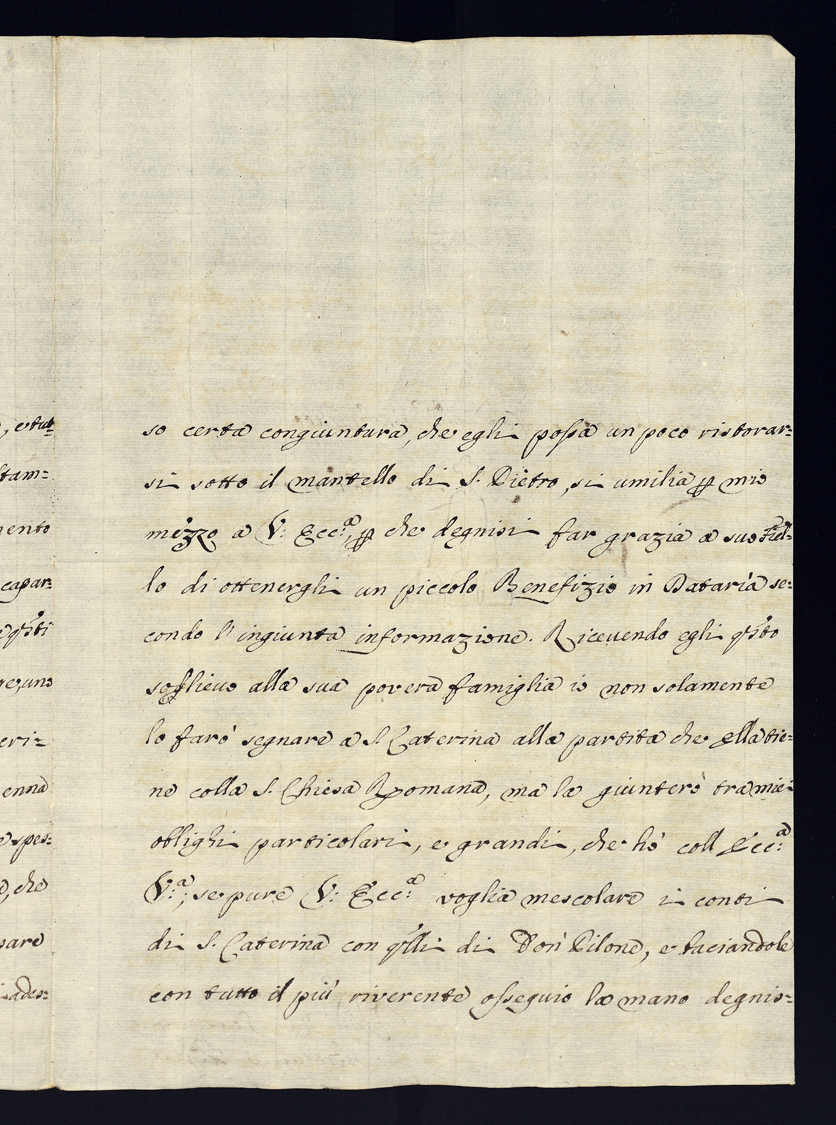 , e tut=
stam=
mento
capar=
q̃sti
re, uno
eri=
enna
e spes=
a, che
pare
ades=
so certa congiuntura, che egli possa un poco ristorar=
si sotto il mantello di S. Pietro, si umilia ꝑ mio
mezzo a V: Ecc:ª, ꝑ che degnisi far grazia a suo Fiel=
lo di ottenergli un piccolo Benefizio in Dataria se=
condo l'ingiunta informazione. Ricevendo egli q̃sto
sollievo alla sua povera famiglia io non solamente
lo farò segnare a S. Caterina alla partita che ella tie=
ne colla S. Chiesa Romana, ma la giunterò tra miei
oblighi particolari, e grandi, che hò coll'Ecc:ª
V:ª, se pure V: Ecc:ª voglia mescolare i conti
di S. Caterina con q̃lli di Don Pilone, e baciandole
con tutto il più riverente ossequio la mano degnis=